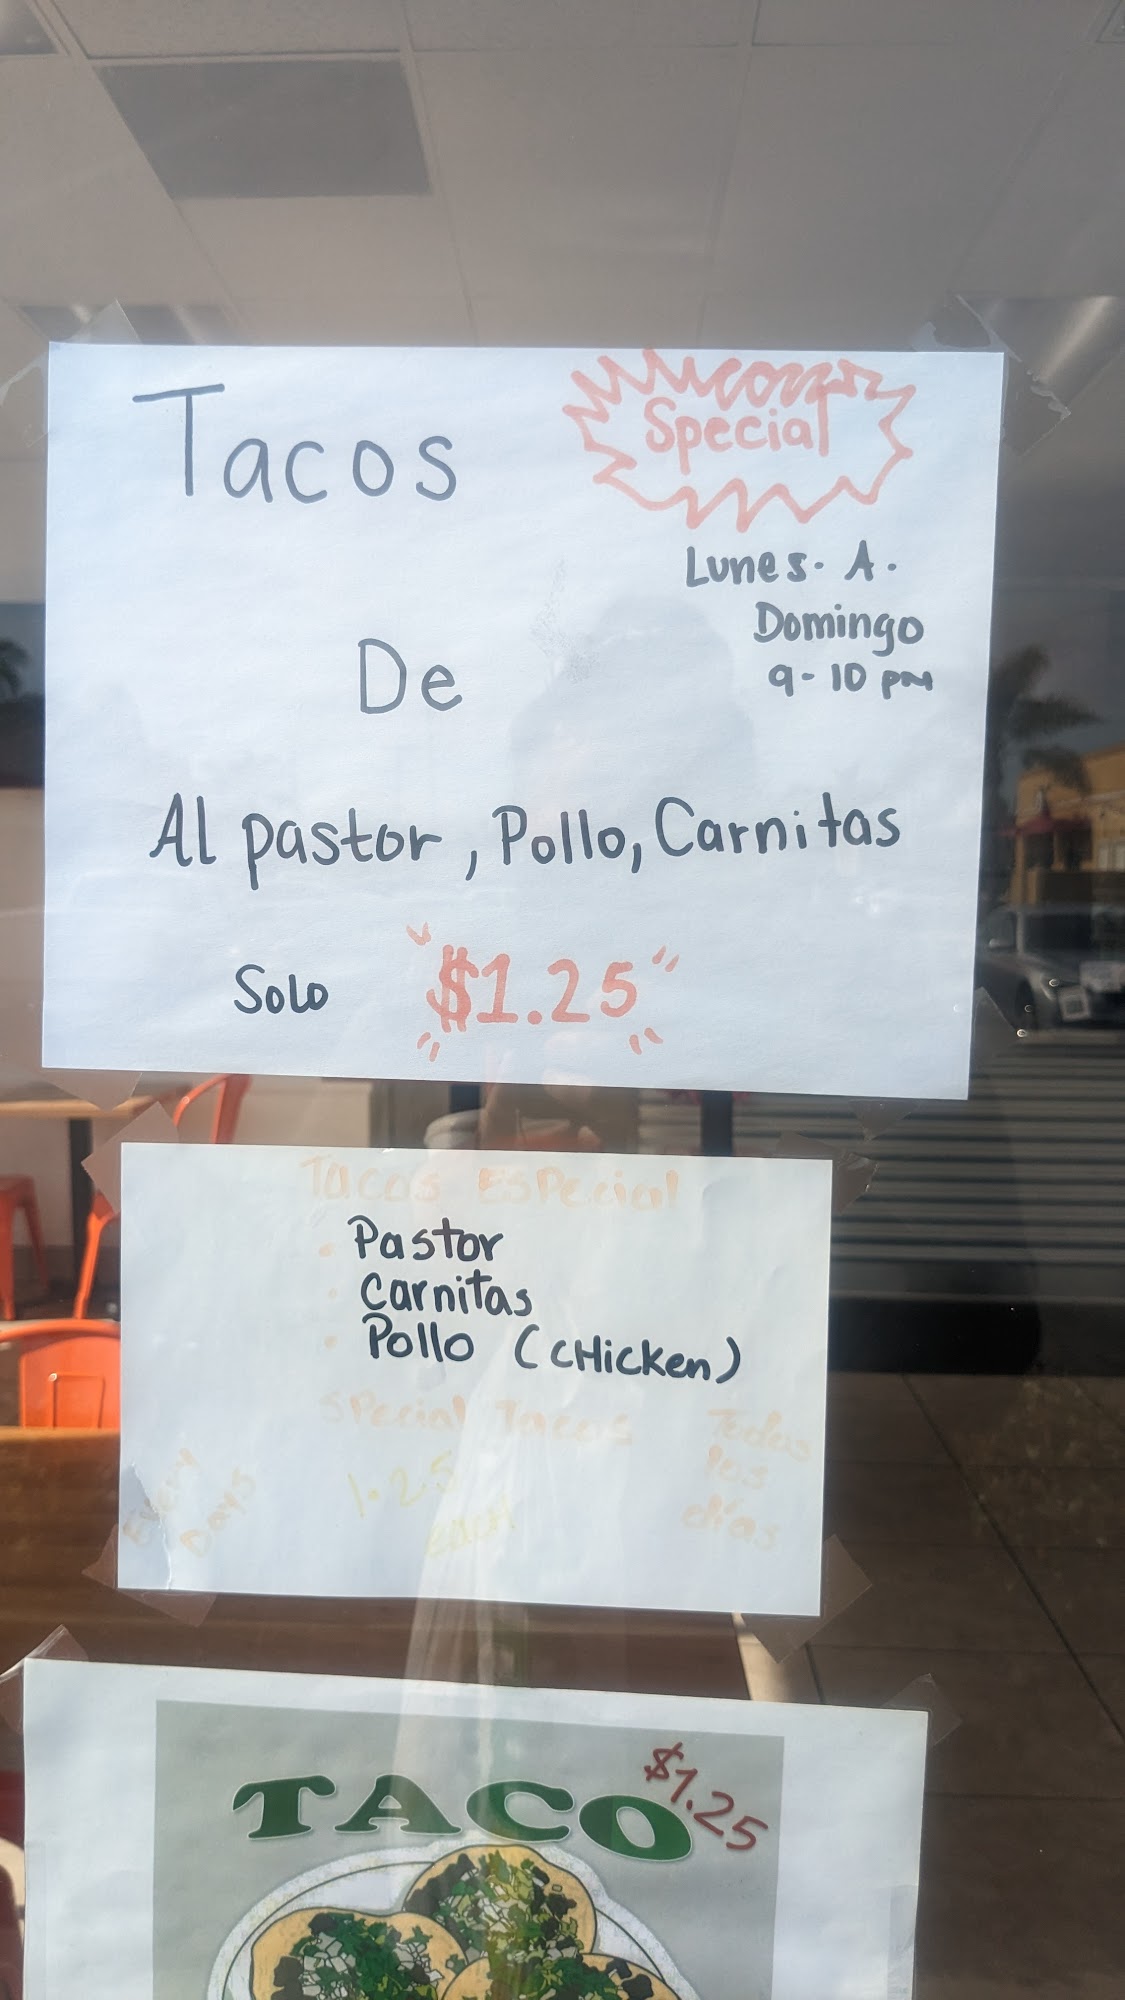 Tacos
Special
Lunes. A.
Domingo
9-10 pm
De
Al pastor, Pollo, Carnitas
Solo "$1.25"
Tacos Especial
· Pastor
· Carnitas
· Pollo (CHicken)
Special Tacos
1.25
each
Every
Days
Todos
los
días
TACO
$1.25